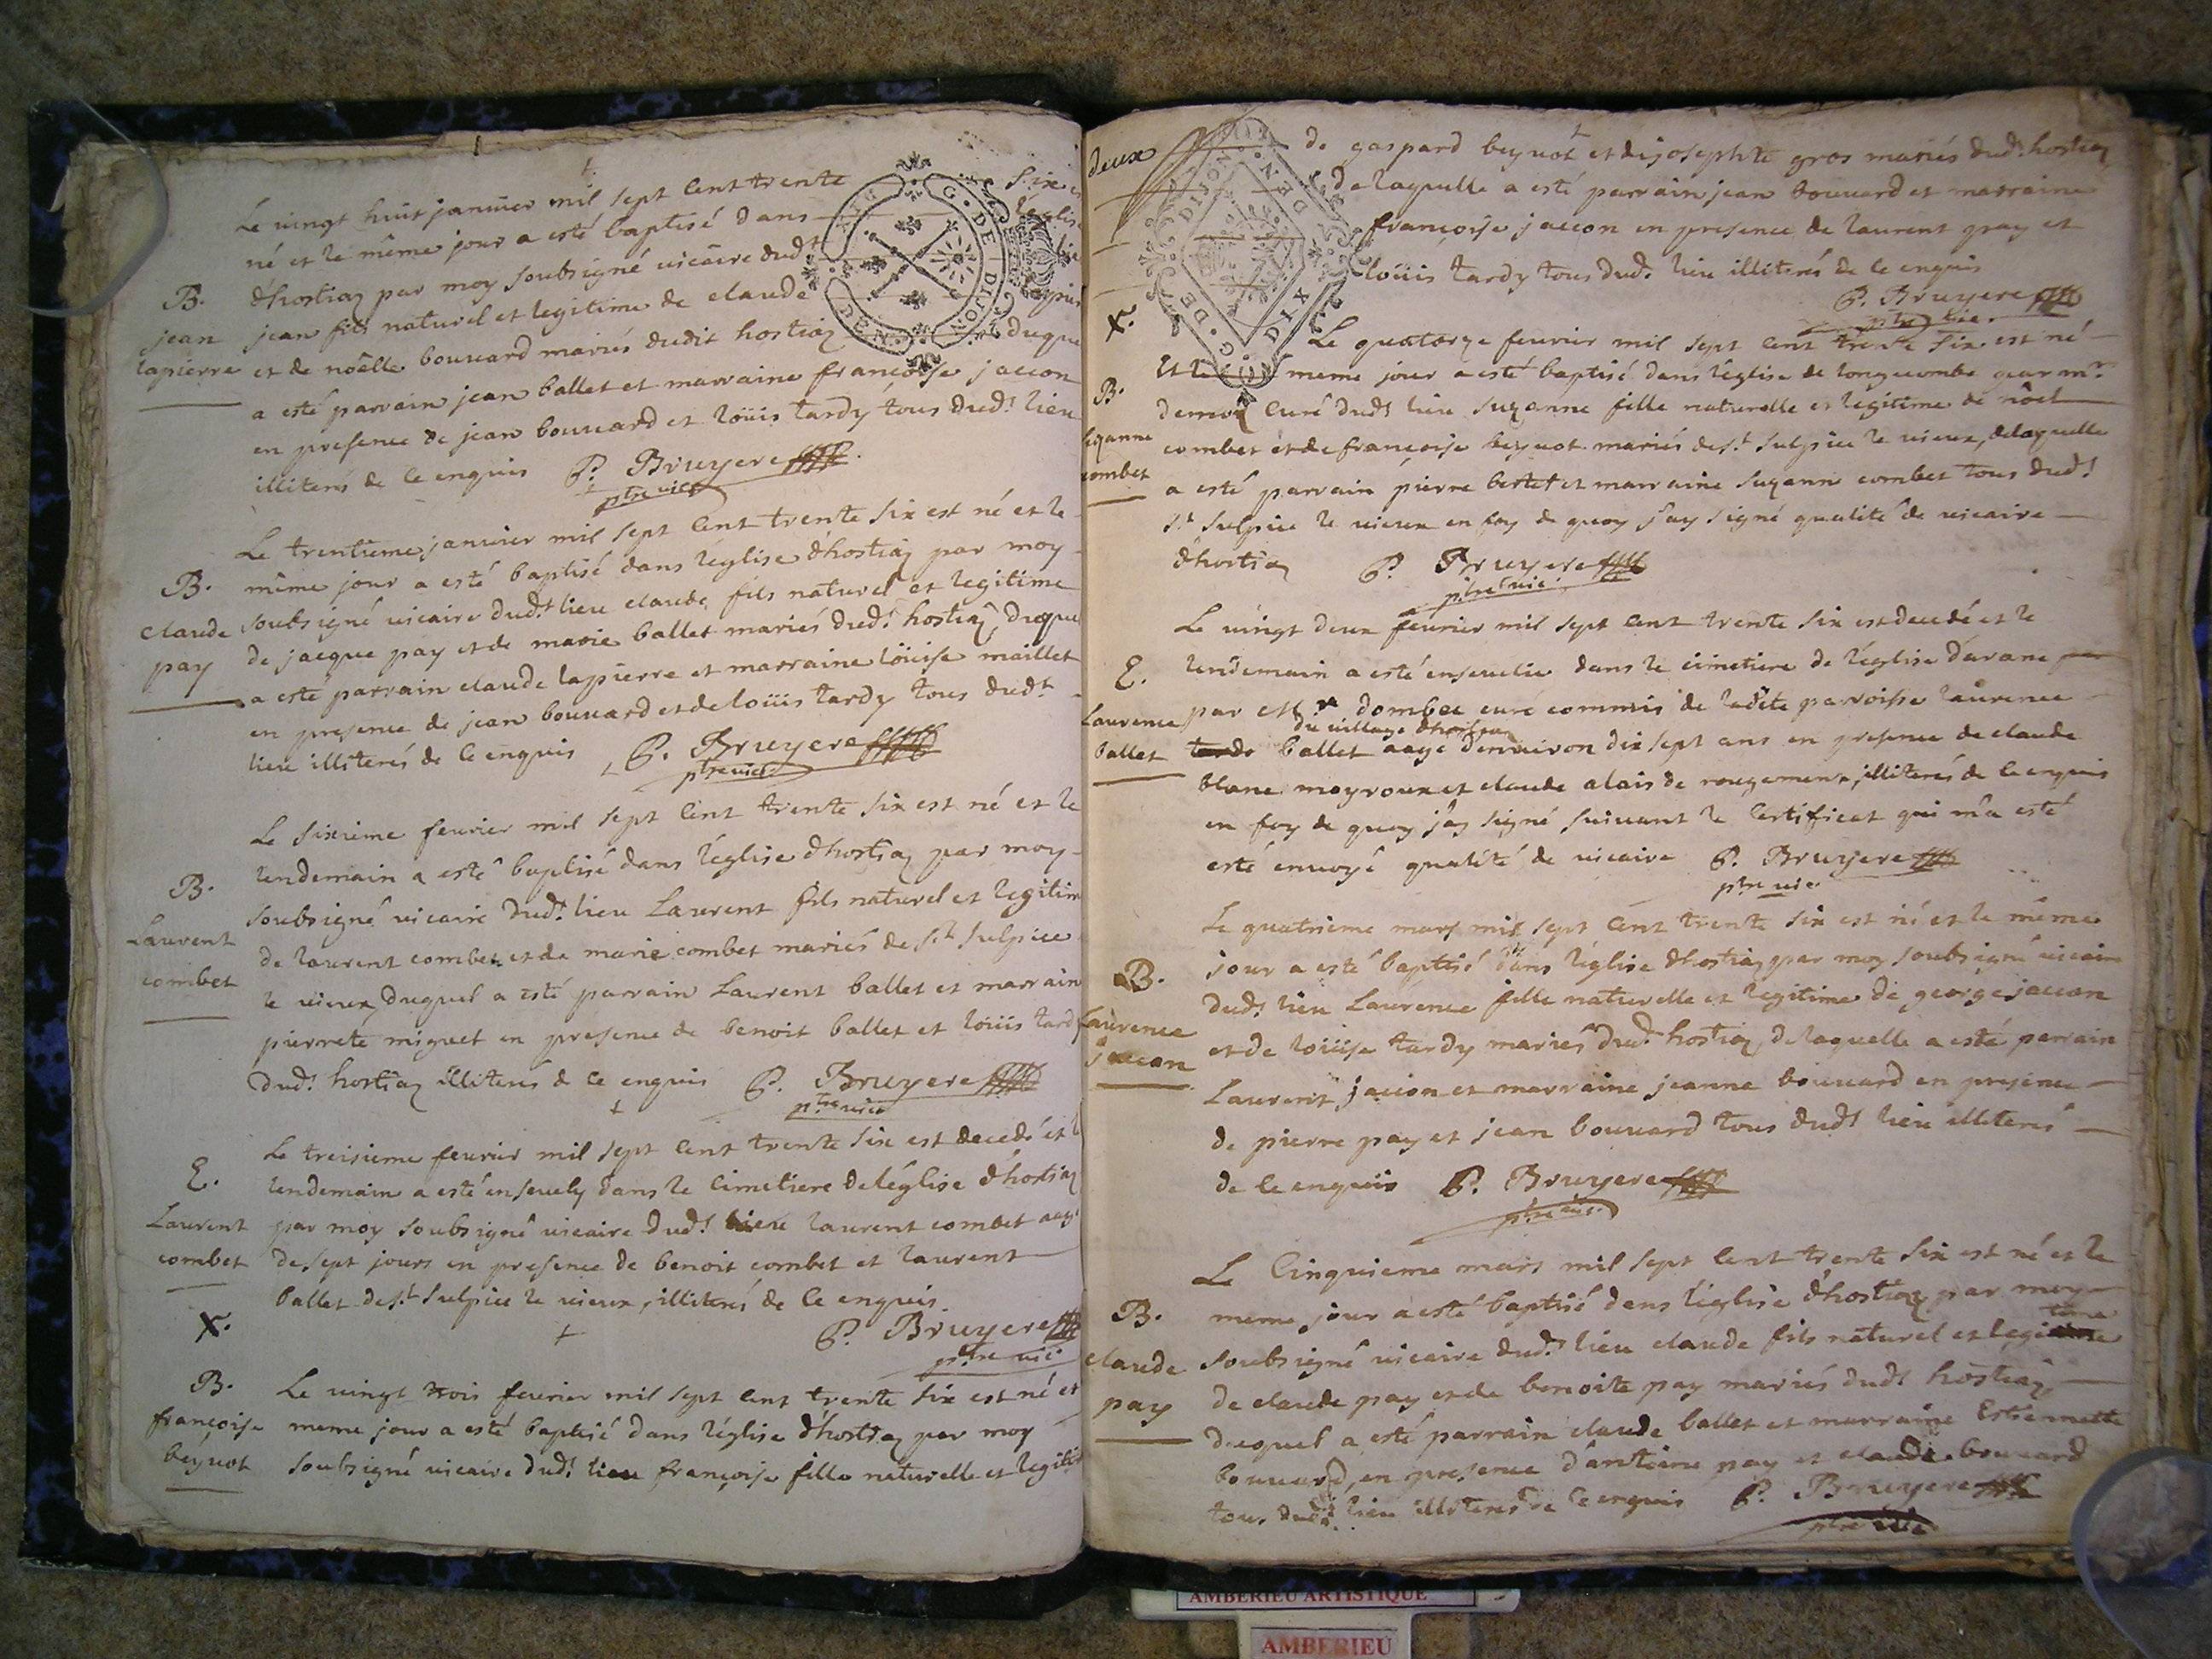 Le vingt huit janvier mil sept cent trente six est
né et le même jour a esté baptisé dans l'eglise
d'hostiaz par moy soubsigné vicaire dudt lieu
B. jean lapierre
jean fils naturel et legitime de claude lapierre
et de noëlle bouvard mariés dudit hostiaz duquel
a esté parrain jean ballet et marraine françoise jaccon
en presence de jean bouvard et loüis tardy tous dudt lieu
illiterés de ce enquis P. Bruyere
ptre vice
Le trentieme janvier mil sept cent trente six est né et le
B. claude pay
même jour a esté baptisé dans l'eglise d'hostiaz par moy
soubsigné vicaire dudt lieu claude fils naturel et legitime
de jacque pay et de marie ballet mariés dudt hostiaz, duquel
a esté parrain claude lapierre et marraine loüise maillet
en presence de jean bouvard et de loüis tardy tous dudt
lieu illiterés de ce enquis P. Bruyere
ptre vice
Le sixieme fevrier mil sept cent trente six est né et le
B. Laurent combet
lendemain a esté baptisé dans l'église d'hostiaz par moy
soubsigné vicaire dudt lieu Laurent fils naturel et legitim
de laurent combet et de marie combet mariés de St Sulpice
le vieux duquel a esté parrain Laurent ballet et marrain
pierrete miguet en presence de benoit ballet et loüis tardy
dudt hostiaz illiterés de ce enquis P. Bruyere
ptre vice
Le treisieme fevrier mil sept cent trente six est decedé et l
E. Laurent combet
lendemain a esté ensevely dans le cimetiere de l'église d'hostiaz
par moy soubsigné vicaire dudt lieu laurent combet aagé
de sept jours en presence de benoit combet et laurent
ballet de St Sulpice le vieux, illiterés de ce enquis
X. P. Bruyere
ptre vic
B. françoise béynot
Le vingt trois fevrier mil sept cent trente six est né et
meme jour a esté baptisé dans l'église d'hostiaz par moy
soubsigné vicaire dudt lieu françoise fille naturelle et legiti
deux
G. DE DIJON
DIX DEN
de gaspard beynot et de josephte gros mariés dudt hostiaz
de laquelle a esté parrain jean bouvard et marraine
françoise jaccon en presence de laurent gray et
loüis tardy tous dudt lieu illiterés de ce enquis
P. Bruyere
ptre vic.
X.
Le quatorze fevrier mil sept cent trente six est né
Et le meme jour a esté baptisé dans l'église de longecombe par mre
B. suzanne combet
curé dudt lieu suzanne fille naturelle et legitime de nöel
combet et de françoise beynot mariés de St Sulpice le vieux, de laquelle
a esté parrain pierre bertet et marraine suzanne combet tous dudt
St Sulpice le vieux en foy de quoy j'ay signé qualité de vicaire
d'hostiaz P. Bruyere
ptre vic.
Le vingt deux fevrier mil sept cent trente six est decedé et le
E. Laurence ballet
lendemain a esté ensevelie dans le cimetiere de l'église d'arane
par Mre dombec curé commis de ladite parroisse laurence
du village d'hostiaz
ballet aagé d'environ dix sept ans en presence de claude
blanc mayroux et claude alais de rougemont, illiterés de ce enquis
en foy de quoy j'ay signé suivant le certificat qui m'a esté
esté envoyé qualité de vicaire P. Bruyere
ptre vic.
Le quatrieme mars mil sept cent trente six est né et le même
B. Laurence jaccon
jour a esté baptisé dans l'église d'hostiaz par moy soubsigné vicaire
dudt lieu Laurence fille naturelle et legitime de george jaccon
et de loüise tardy mariés dudt hostiaz de laquelle a esté parrain
Laurent jaccon et marraine jeanne bouvard en presence
de pierre pay et jean bouvard tous dudt lieu illiterés
de ce enquis P. Bruyere
ptre vic.
Le Cinquieme mars mil sept cent trente six est né et le
B. claude pay
meme jour a esté baptisé dans l'église d'hostiaz par moy
soubsigné vicaire dudt lieu claude fils naturel et legitime
de claude pay et de benoite pay mariés dudt hostiaz
duquel a esté parrain claude ballet et marraine Estiennette
bouvard, en presence d'antoine pay et claude bouvard
tous dudt lieu illiterés de ce enquis P. Bruyere
ptre vic
AMBERIEU ARTISTIQUE
AMBERIEU